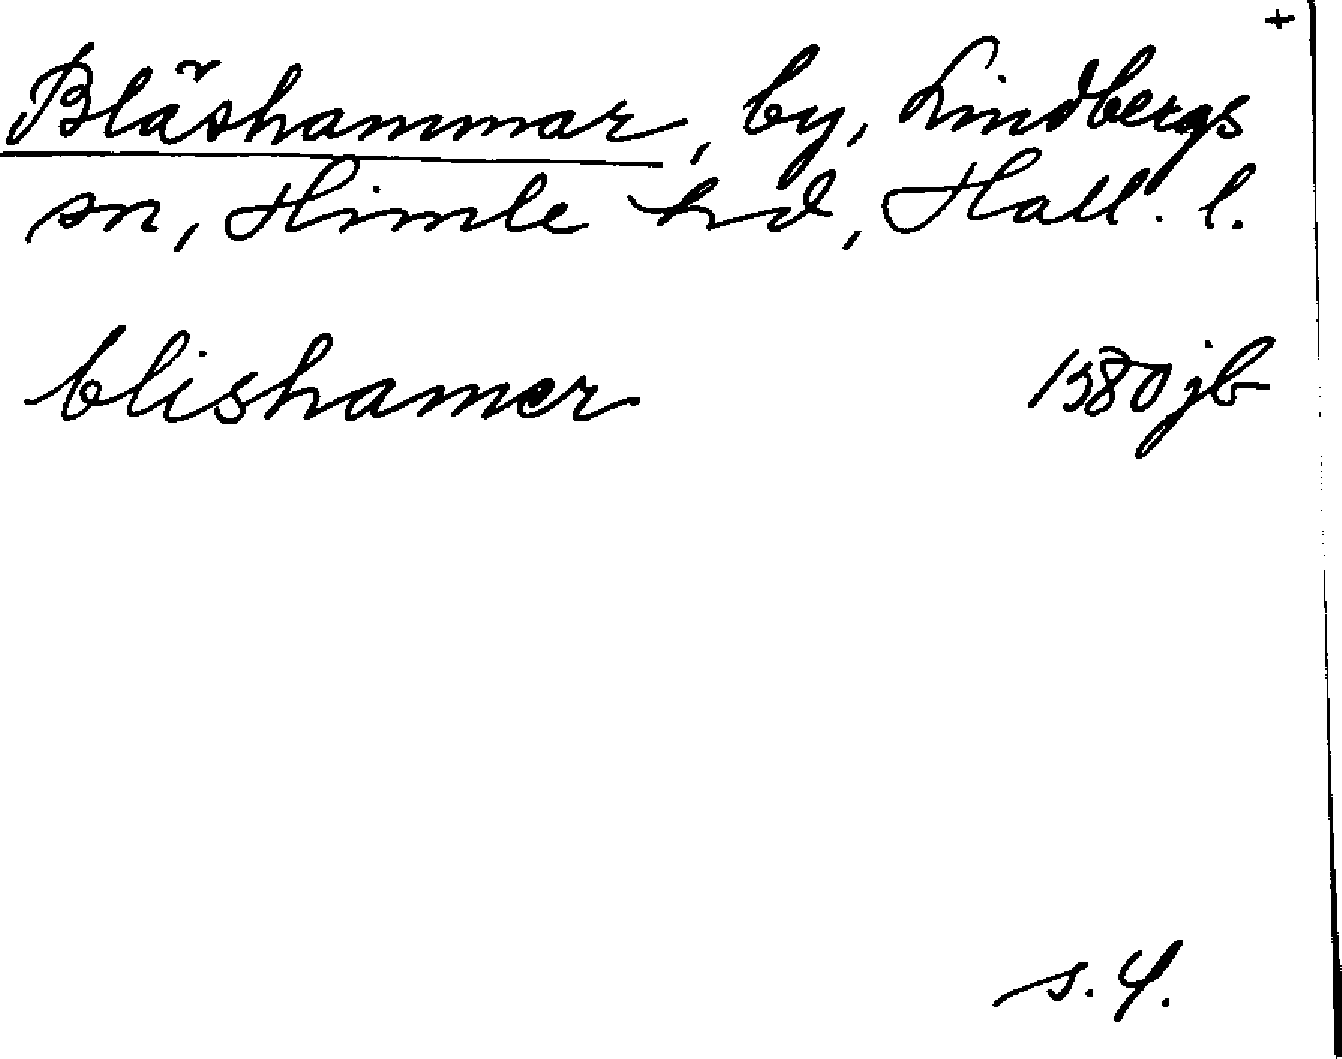 +
Bläshammar, by, Lindbergs
sn, Himle hd, Hall. l.
blishamer 1580 jb
s. 4.